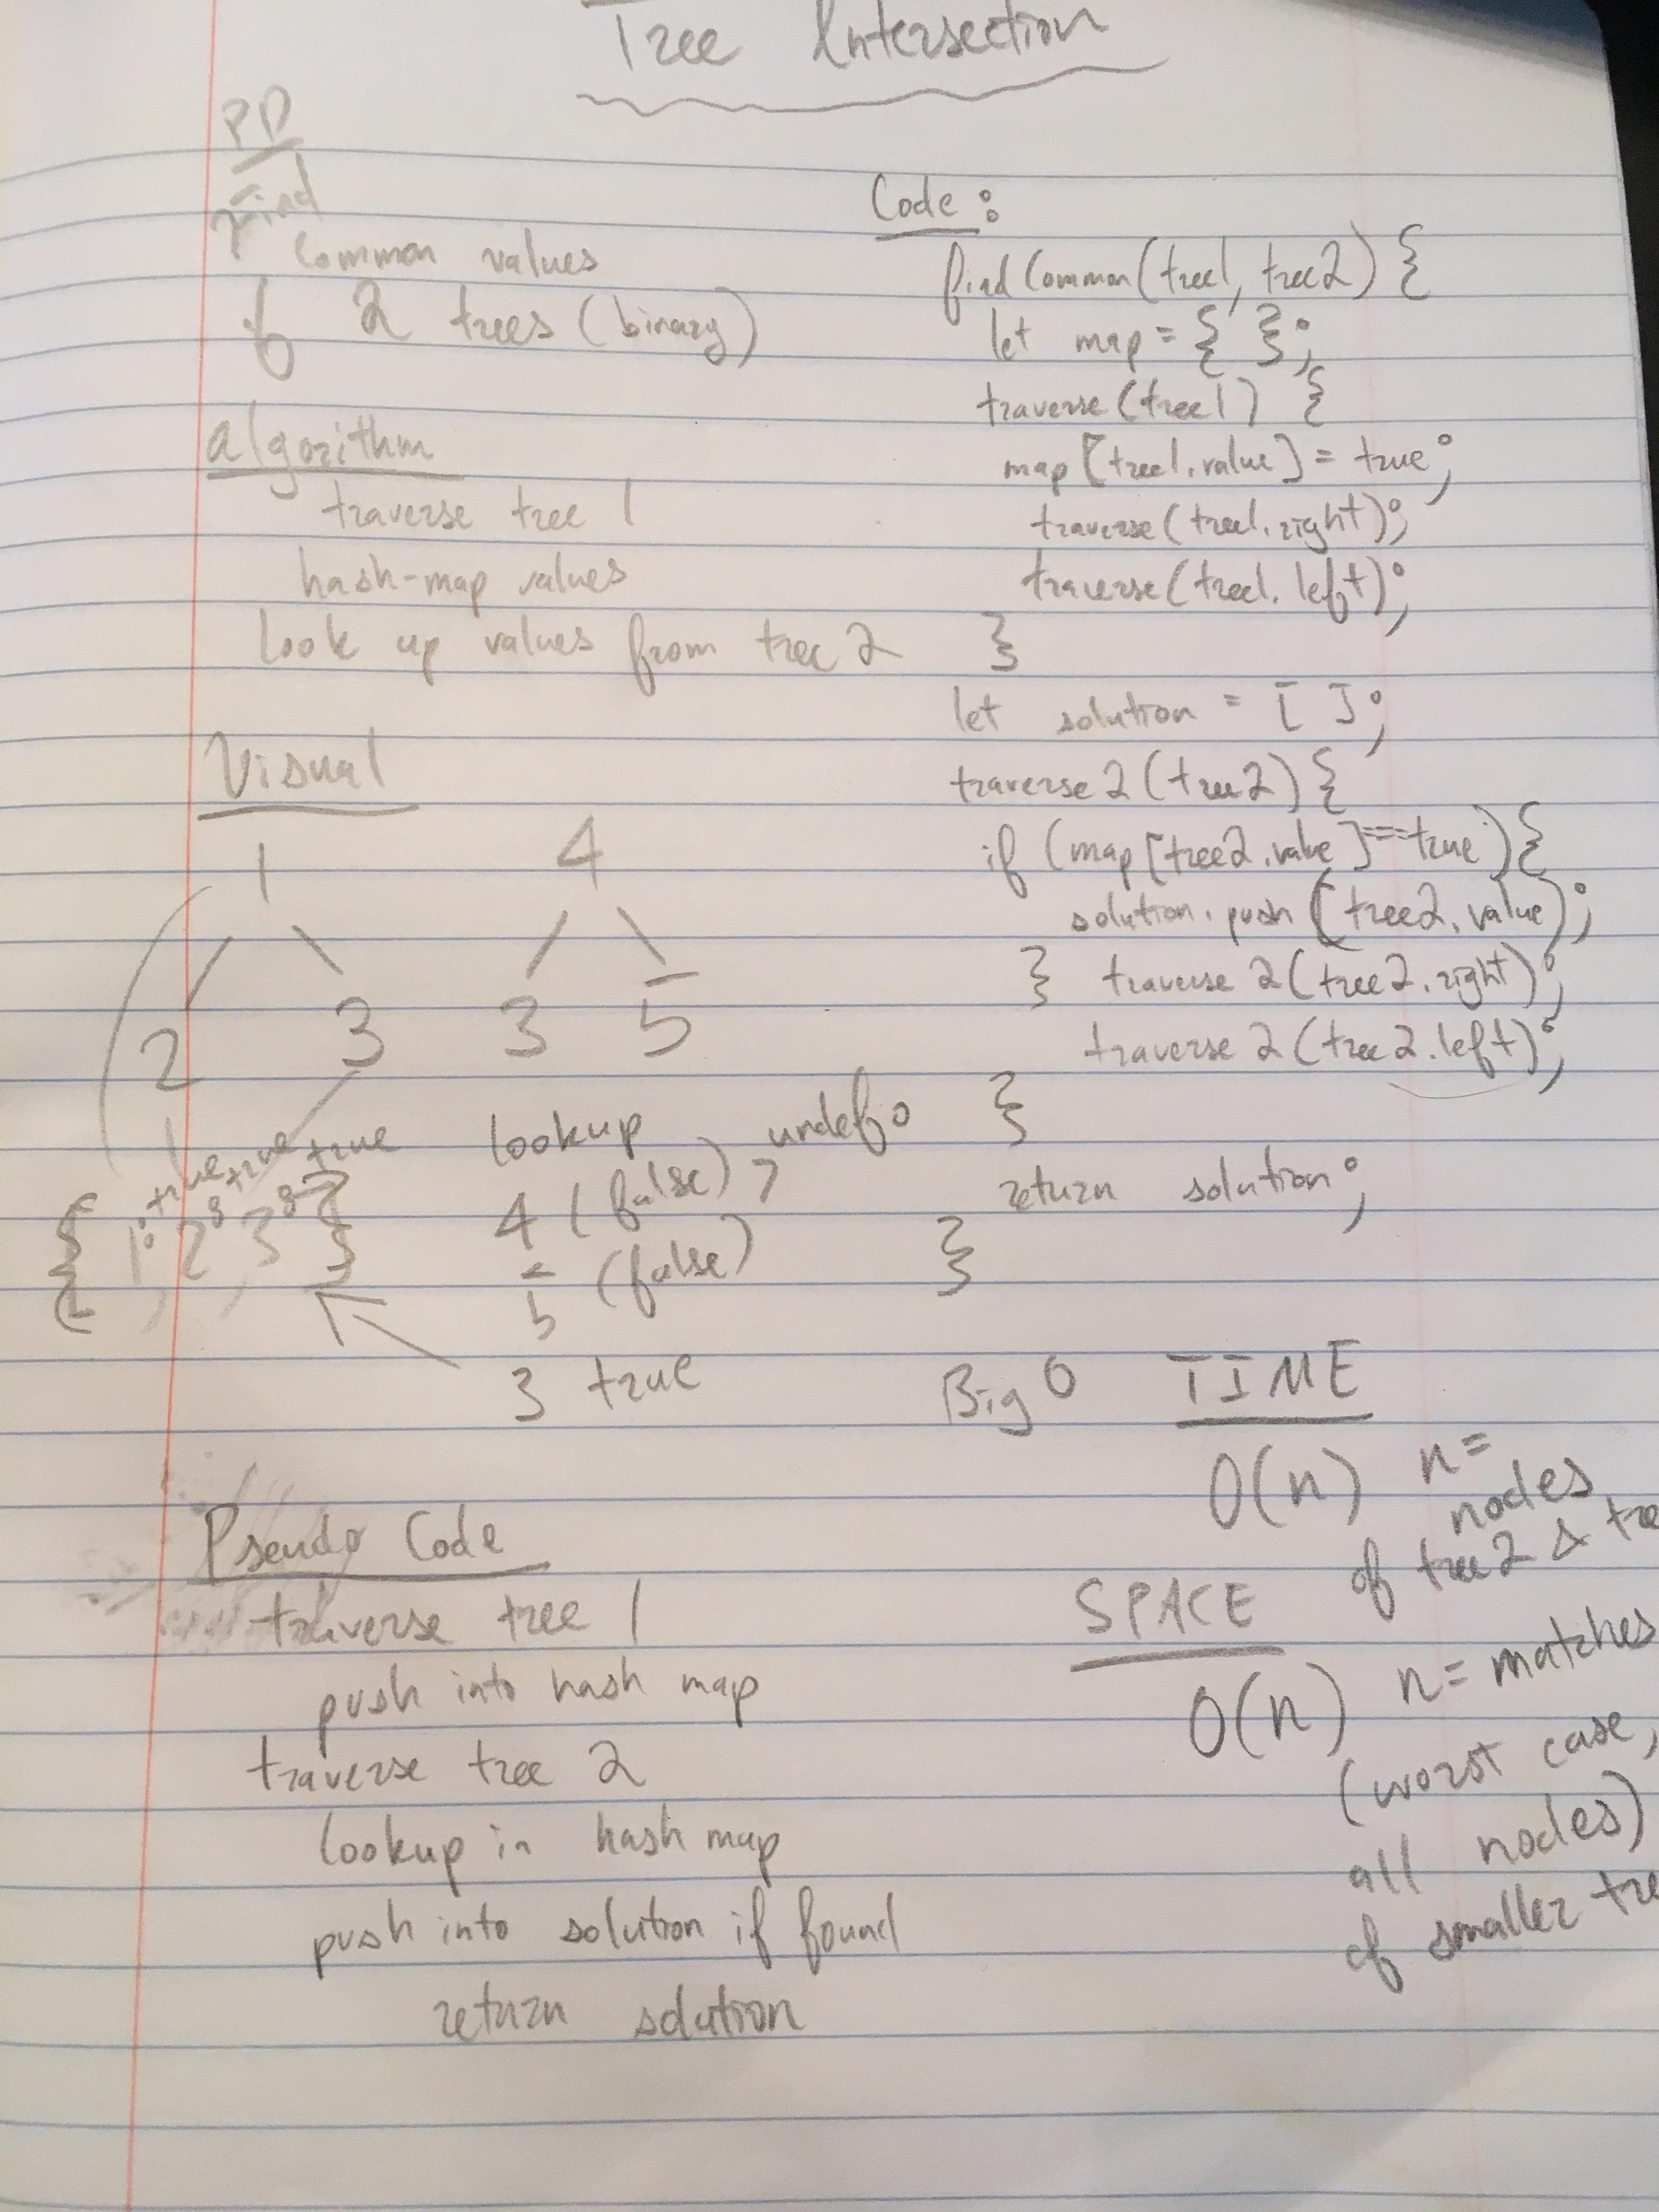 Tree Intersection
PD
Find
Common values
of 2 trees (binary)
algorithm
traverse tree 1
hash-map values
look up values from tree 2
Visual
1 4
2 3 3 5
{ 1: true, 2: true, 3: true }
lookup
4 (false), undef.
5 (false)
3 true
Pseudo Code
traverse tree 1
push into hash map
traverse tree 2
lookup in hash map
push into solution if found
return solution
Code:
find Common(tree1, tree2) {
let map = { };
traverse(tree1) {
map[tree1.value] = true;
traverse(tree1.right);
traverse(tree1.left);
}
let solution = [ ];
traverse2(tree2) {
if (map[tree2.value] === true) {
solution.push(tree2.value);
} traverse2(tree2.right);
traverse2(tree2.left);
}
return solution;
}
Big O TIME
O(n) n =
nodes
of tree2 & tre
SPACE
O(n) n = matches
(worst case,
all nodes)
of smaller tre